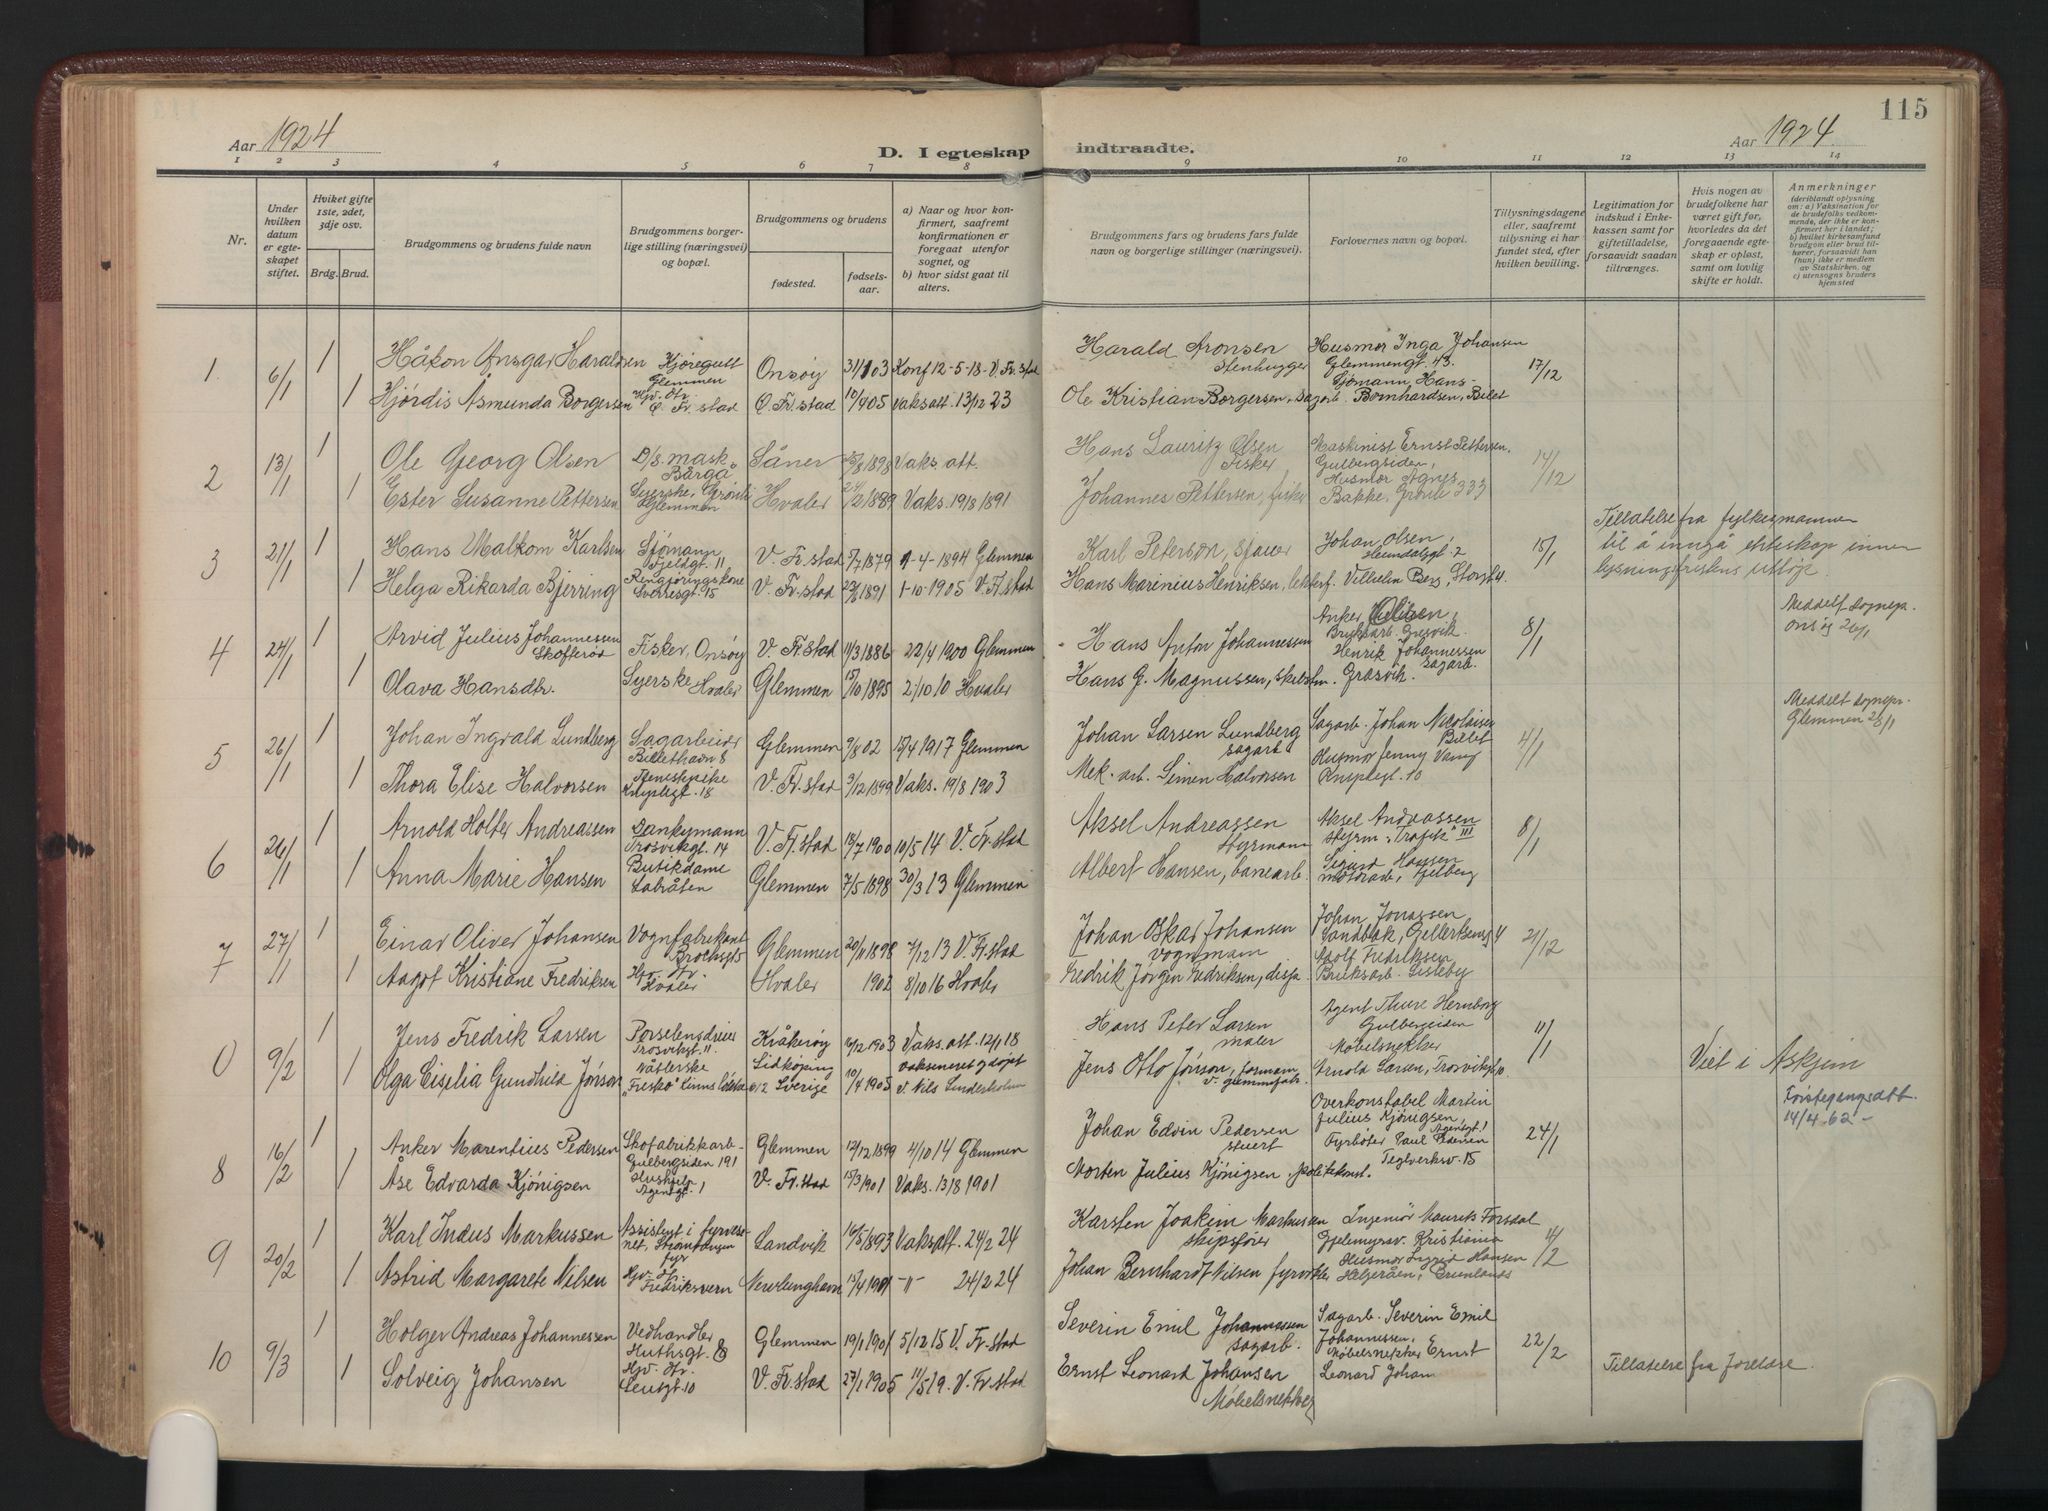 115
Aar 1924
D. I egteskap indtraadte.
Aar 1924.
1 2 3 4 5 6 7 8 9 10 11 12 13 14
Nr.
Under hvilken datum er egteskapet stiftet.
Hviket gifte 1ste, 2det, 3dje osv.
Brdg. Brud.
Brudgommens og brudens fulde navn
Brudgommens borgerlige stilling (næringsvei) og bopæl.
Brudgommens og brudens
fødested.
fødselsaar.
a) Naar og hvor konfirmert, saafremt konfirmationen er foregaat utenfor sognet, og
b) hvor sidst gaat til alters.
Brudgommens fars og brudens fars fulde navn og borgerlige stillinger (næringsvei).
Forlovernes navn og bopæl.
Tillysningsdagene eller, saafremt tillysning ei har fundet sted, efter hvilken bevilling.
Legitimation for indskud i Enkekassen samt for giftetilladelse, forsaavidt saadan tiltrænges.
Hvis nogen av brudefolkene har været gift før, hvorledes da det foregaaende egteskap er opløst, samt om lovlig skifte er holdt.
Anmerkninger (deriblandt oplysning om: a) Vaksination for de brudefolks vedkommende, der ikke er konfirmert her i landet; b) hvilket kirkesamfund brudgom eller brud tilhører, forsaavidt han (hun) ikke er medlem av Statskirken, og c) utensogns bruders hjemsted
1. 6/1 1 Håkon Ansgar Haraldsen Kjøregutt Glemmen Onsøy 31/1 03 Konf 12-5-18. V. Fr.stad Harald Aronsen Stenhugger Husmor Inga Johansen Glemmengt. 43. 17/12
1 Hjørdis Åsmunda Borgersen Hjv. dtr. Ø. Fr. stad Ø. Fr. stad 10/4 05 Vaks att. 13/12 23 Ole Kristian Borgersen, Sagarb. Sjømann Hans Bernhardsen, Billet
2 13/1 1 Ole Georg Olsen D/S. mask. Såner 1898 Vaks. att. Hans Lauritz Olsen Fisker Maskinist Ernst Pettersen, Gulbergsiden, 14/12
1 Ester Susanne Pettersen Syerske, Glemmen Hvaler 24/2 1889 Vaks. 19/8 1891 Johannes Pettersen, fisker Husmor Agnes Bakke, 333
3 21/1 1 Hans Malkom Karlsen Sjømann Fjeldgt. 11 V. Fr. stad 5/7 1879 1-4-1894 Glemmen Karl Peterson, sjauer Johan Olsen, 2 15/1 Tillatelse fra fylkesmannen til å inngå ekteskap innen lysningsfristens utløp.
1 Helga Rikarda Bjerring Rengjøringskone Sverresgt. 15 V. Fr. stad 1891 1-10-1905 V. Fr. stad Hans Marinius Henriksen, Vilhelm Berg, Storgt 4.
4 24/1 1 Arvid Julius Johannessen Skofterød Fisker, Onsøy V. Fr. stad 11/3 1886 22/4 1900 Glemmen Hans Anton Johannessen Anker Olsen, Bruksarb. Gresvik. 8/1 Meddelt sognepr. onsøy 26/1
1 Olava Hansdtr. Syerske Hvaler Glemmen 15/10 1895 2/10 10 Hvaler Hans G. Magnussen, Henrik Johannessen Sagarb. Gresvik.
5 26/1 1 Johan Ingvald Lundberg Sagarbeider Billethavn 8 Glemmen 9/8 02 15/4 1917 Glemmen Johan Larsen Lundberg sagarb. Sagarb. Johan Nicolaisen Billet 4/1 Meddelt sognepr. Glemmen 28/1
1 Thora Elise Halvorsen Tjenestpike Kniplegt. 18 V. Fr. stad 9/12 1899 Vaks. 19/8 1903 Mek. arb. Simen Halvorsen Husmor Jenny Vang Kniplegt. 10
6 26/1 1 Arnold Holter Andreassen Dankymann Trosvikgt. 14 V. Fr. stad 18/7 1900 10/5 14 V. Fr. stad Aksel Andreassen Styrmann Aksel Andreassen styrm. "Trafik" III 8/1
1 Anna Marie Hansen Butikdame Labråten Glemmen 7/5 1898 30/3 13 Glemmen Albert Hansen, banearb. Sigurd Hansen motorarb.
7 27/1 1 Einar Oliver Johansen Vognfabrikant Brochsgt 5 Glemmen 20/11 1898 7/12 13 V. Fr. stad Johan Oskar Johansen vognmann Johan Jonassen Sandbak, 4 21/12
1 Aagot Kristiane Fredriksen Hjv. dtr. Hvaler Hvaler 1902 8/10 16 Hvaler Fredrik Jørgen Fredriksen, Adolf Fredriksen Bruksarb. Lisleby
0 9/2 1 Jens Fredrik Larsen Porselensdreier Trosvikgt. 11 Kråkerøy 16/12 1903 Vaks. att. 12/1 18 Hans Peter Larsen maler Agent Thure Hernborg Gulbergsiden 11/1 Viet i Askim
1 Olga Cisilia Gundhild Jönson Nåtlerske Lidköping Sverige 10/4 1905 vaksineret og døpt v. Nils Cederholm Jens Otto Jönson, formann Møbelsnekker Arnold Larsen, Trosvikgt 10. Førstegangsatt. 14/4 62 –
8 16/2 1 Anker Marentius Pedersen Skofabrikkarb. Gulbergsiden 191 Glemmen 12/12 1899 4/10 14 Glemmen Johan Edvin Pedersen stuert Overkonstabel Martin Julius Kjønigsen, Agentgt. 1 24/1
1 Åse Edvarda Kjønigsen Hushjelp Agentgt. 1 V. Fr. stad 15/3 1901 Vaks. 13/8 1901 Morten Julius Kjønigsen, politikonst. Fyrbøter Paul Pedersen Teglverksv. 15
9 20/2 1 Karl Indus Markussen Assistent i fyrvesenet, fyr Landvik 16/5 1893 Vaksatt. 24/2 24 Karsten Joakim Markussen skipsfører Ingeniør Maurits Forsdal Gjelemyrsv. Kristiania 4/2
1 Astrid Margarete Nilsen Hjv. dtr. Fredriksvern Nevlunghavn 15/4 1901 -"- 24/2 24 Johan Bernhardt Nilsen fyrvokter Husmor Ingrid Hansen Helgeråen, Brunlanes
10 9/3 1 Holger Andreas Johannessen Vedhandler Huthsgt. 8 Glemmen 19/1 1901 5/12 15 V. Fr. stad Severin Emil Johannessen sagarb. Sagarb. Severin Emil Johannessen, 22/2
1 Solveig Johansen Hjv. dtr. 10 V. Fr. stad 27/1 1905 11/5 19. V. Fr. stad Ernst Leonard Johansen Møbelsnekker Møbelsnekker Ernst Leonard Johan Tillatelse fra foreldre.